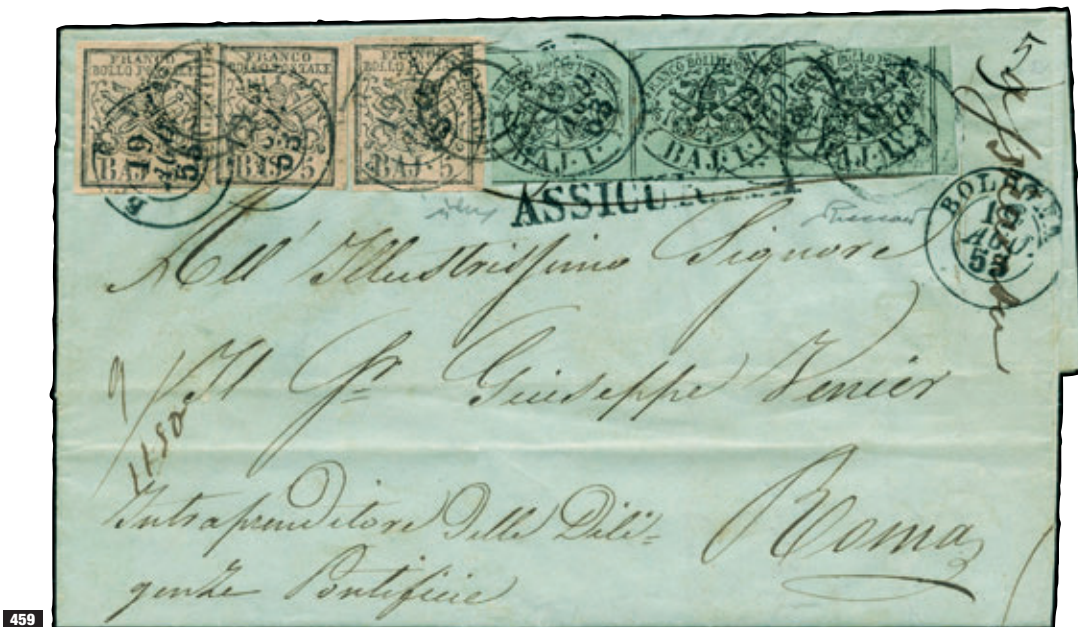 FRANCO
BOLLO POSTALE
BAJ. 5
FRANCO
BOLLO POSTALE
BAJ. 5
FRANCO
BOLLO POSTALE
BAJ. 5
FRANCO BOLLO POSTALE
BAJ. 1.
FRANCO BOLLO POSTALE
BAJ. 1.
FRANCO BOLLO POSTALE
BAJ. 1.
19
53
ASSICURATA
BOLOGNA
19
AGO.
53
All' Illustrissimo Signore
Il Sr Giuseppe Venier
9
1180
Intraprenditore Delle Dili=
genze Pontificie
Roma
459